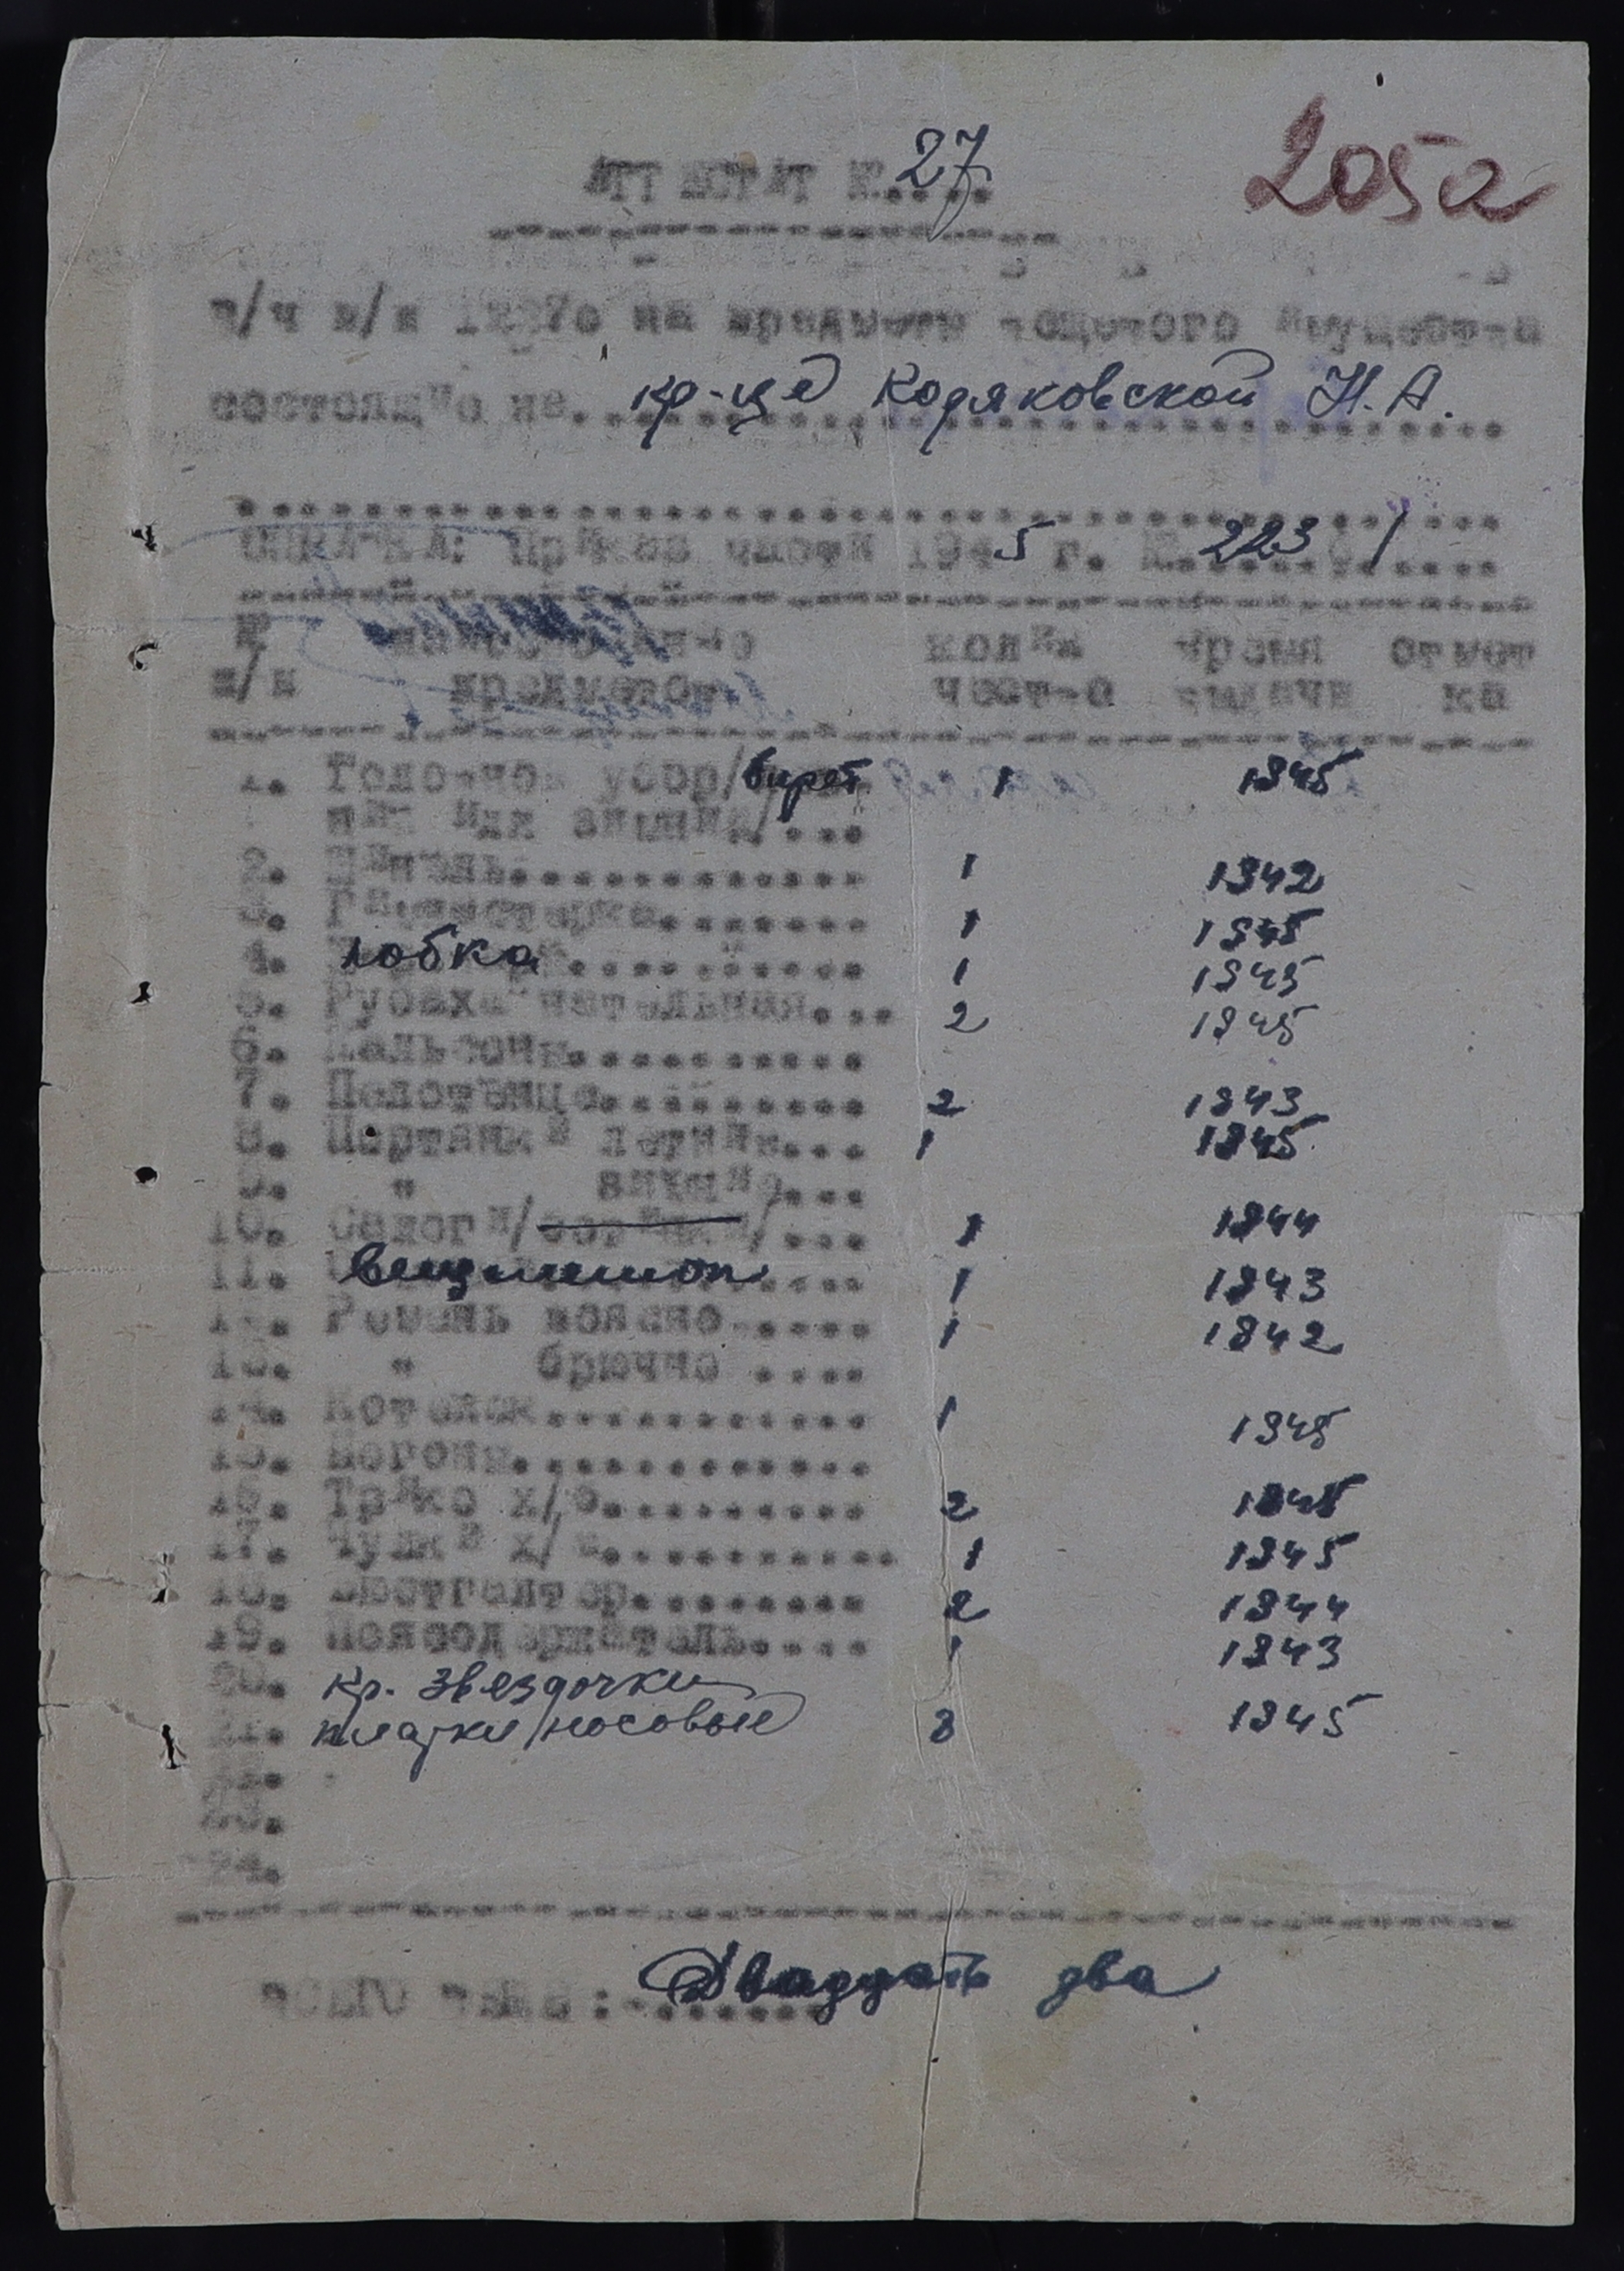 205а
АТТЕСТАТ №....27
в/ч п/п на предметы вещевого имущества
состоящего на. кр-це Кодяковской Н.А.
СПРАВКА: Приказ части 1945 г. № 223
№ наименование колич время отмет
п/п предметов чест-о выдачи ка
1. Головной убор/берет 1 1945
или зимний/...
2. Шинель............ 1 1942
3. Гимнастерка....... 1 1945
4. юбка 1 1945
5. Рубаха нательная.... 2 1945
6. Кальсоны...........
7. Полотенце.......... 2 1943
8. Портянки летние.... 1 1945
9. " зимние....
10. Сапоги/ботинки/... 1 1944
11. вещмешок 1 1943
12. Ремень поясно..... 1 1942
13. " брючно ....
14. Котелок............ 1 1945
15. Погоны.............
16. Трико х/б.......... 2 1945
17. Чулки х/б.......... 1 1945
18. Бюстгалтер........ 2 1944
19. Поясодержатель.... 1 1943
20. кр. звездочки
21. платки носовые 3 1945
22.
23.
24.
ВСЕГО : Двадцать два